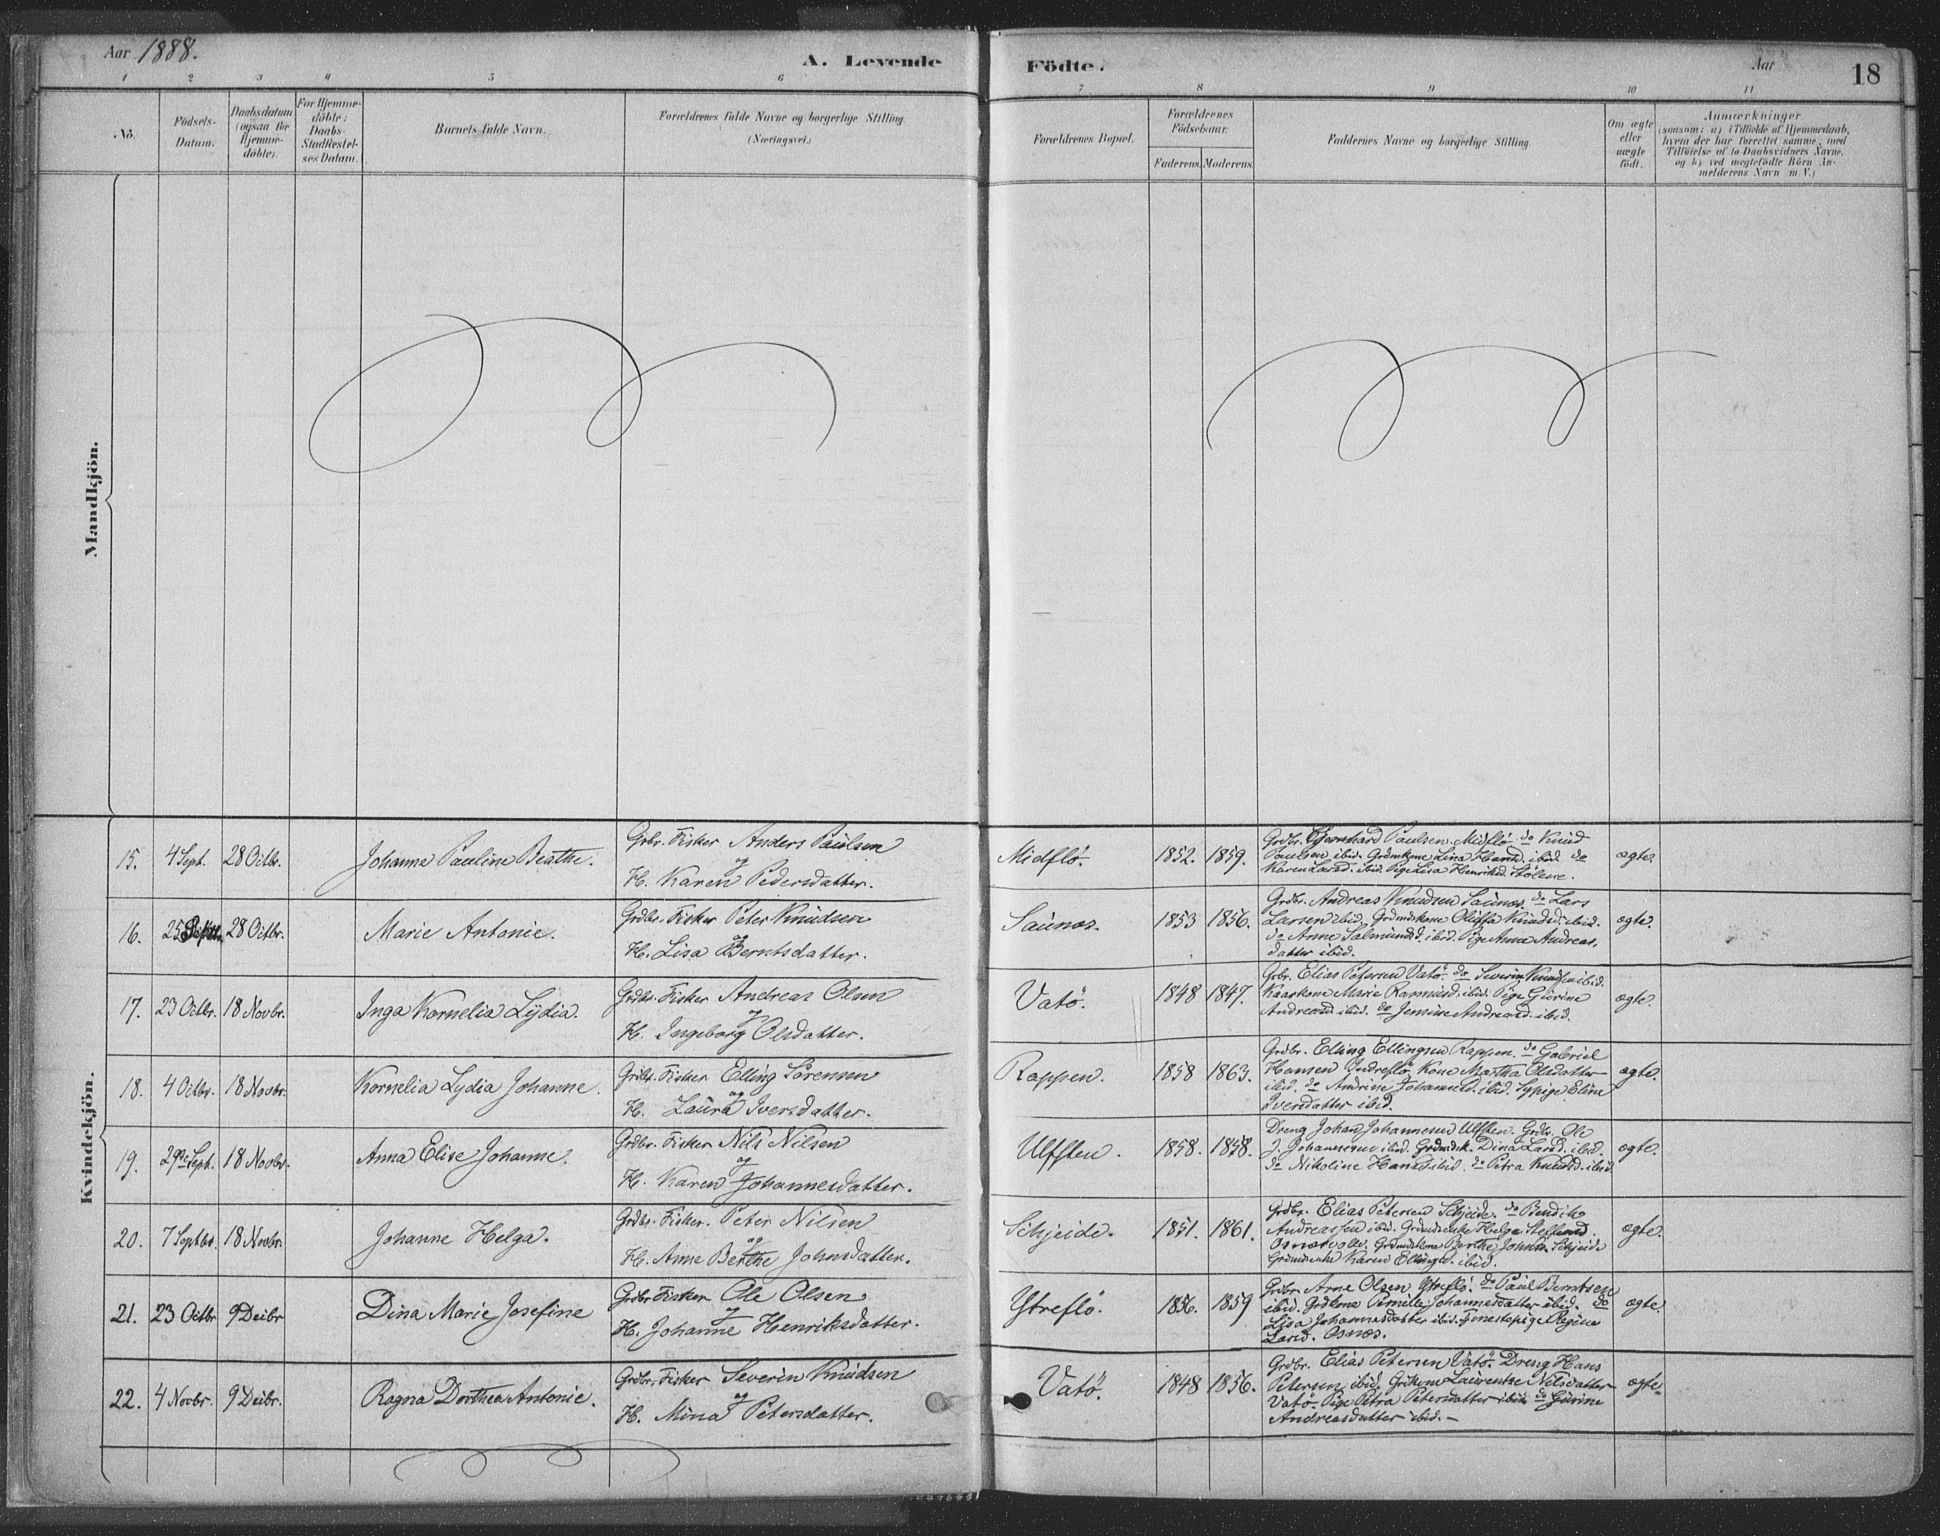 Aar 1888.
A. Levende
Födte.
Aar
18
1 2 3 4 5 6 7 8 9 10 11
No.
Födsels-
Datum.
Daabsdatum
(ogsaa for
Hjemme-
döbte).
For Hjemme-
döbte:
Daabs-
Stadfæstel-
ses Datum.
Barnets fulde Navn.
Forældrenes fulde Navne og borgerlige Stilling.
(Næringsvei.)
Forældrenes Bopæl.
Forældrenes
Födselsaar.
Faderens. Moderens.
Faddernes Navne og borgerlige Stilling.
Om ægte
eller
uægte
födt.
Anmærkninger
(saasom: a) i Tilfælde af Hjemmedaab,
hvem der har forrettet samme, med
Tilföielse af to Daabsvidners Navne,
og b) ved uægtefödte Börn An-
melderens Navn m. V.)
Mandkjön.
Kvindekjön.
15. 4 Sept. 28 Octbr. Johanne Pauline Beathe.
Grbr. Fisker Anders Paulsen
og
H. Karen Pedersdatter.
Midflö. 1852. 1859.
Grdbr. Bernhard Paulsen. Midflö. do Knud
Paulsen ibid. Grdmkone Lina Hansd. ibid do
Karen Larsd. ibid. Pige Lisa Henriksd. Stölene.
ægte.
16. 25 28 Octbr. Marie Antonie.
Grdbr. Fisker Peter Knudsen
og
H. Lisa Berntsdatter.
Saunos. 1853 1856.
Grdbr. Andreas Knudsen Saunos. do Lars
Larsen ibid. Grdmdskone Oluffa Knudsd. ibid.
do Anne Salmundsd. ibid. Pige Anna Andreas-
datter ibid.
ægte.
17. 23 Octbr. 18 Novbr. Inga Kornelia Lydia.
Grdbr. Fisker Andreas Olsen
og
H. Ingeborg Olsdatter.
Vatö. 1848 1847.
Grbr. Elias Petersen Vatö. do Severin Knudsen ibid.
Kaarkone Marie Rasmusd. ibid. Pige Gurine
Andreasd. ibid. do Jensine Andreasd. ibid.
ægte.
18. 4 Octbr. 18 Novbr. Kornelia Lydia Johanne.
Grdbr. Fisker Elling Sörensen
og
H. Laura Iversdatter.
Rappen. 1858 1863.
Grdbr. Elling Ellingsen Rappen. do Gabriel
Hansen Indreflö, Kone Martha Olsdatter
ibid. do Andrine Johannesd. ibid. Sypige Eline
Iversdatter ibid.
ægte.
19. 29de Sept. 18 Novbr. Anna Elise Johanne.
Grdbr. Fisker Nils Nilsen
og
H. Karen Johannesdatter.
Ulfsten. 1858. 1858.
Dreng Johan Johannesen Ulfsten. Grdbr. Ole
J. Johannesen ibid. Grdmdsk. Dina Larsd. ibid.
do Nikoline Hansd. ibid. do Petra Knudsd. ibid
ægte.
20. 7 Septbr. 18 Novbr. Johanne Helga.
Grdbr. Fisker. Peter Nilsen
og
H. Anne Berthe Johnsdatter.
Schjeide. 1851. 1861.
Grdbr. Elias Petersen Schjeide. do Bendik
Andreassen ibid. Grdmdsenke Helga Steffensd.
Osnesvold. Grdmdskone Berthe Johnsd. Schjeide
Grdmdenke Karen Ellingsd. ibid.
ægte.
21. 23 Octbr 9 Decbr Dina Marie Josefine
Grdbr Fisker Ole Olsen
og
H. Johanne Henriksdatter.
Ytreflö. 1856. 1859
Grdbr. Arne Olsen Ytreflö. do Paul Berntsen
ibid. Grdkone Pernille Johannesdatter ibid. do
Lisa Johannesdatter ibid. Tjenestepige Regine
Larsd. Osnes.
ægte
22. 4 Novbr. 9 Decbr. Ragna Dorthea Antonie.
Grdbr. Fisker Severin Knudsen
og
H. Mina Petersdatter.
Vatö. 1848 1856.
Grdbr. Elias Petersen Vatö. Dreng Hans
Petersen ibid. Grdkone Laurentse Nilsdatter
Vatö. Pige Petra Petersdatter ibid. do Gurine
Andreasdatter ibid.
ægte.